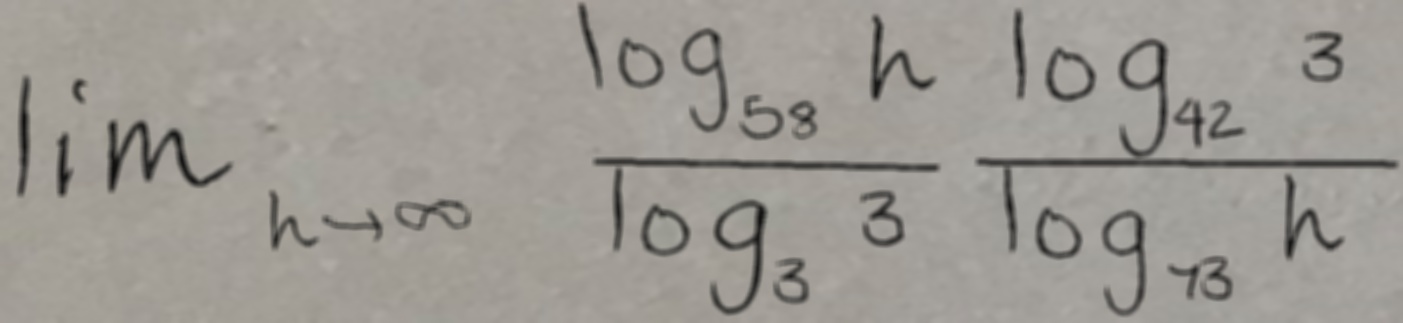 lim_{h→∞} \frac{log_{58} h}{log_3 3} \frac{log_{42} 3}{log_{73} h}